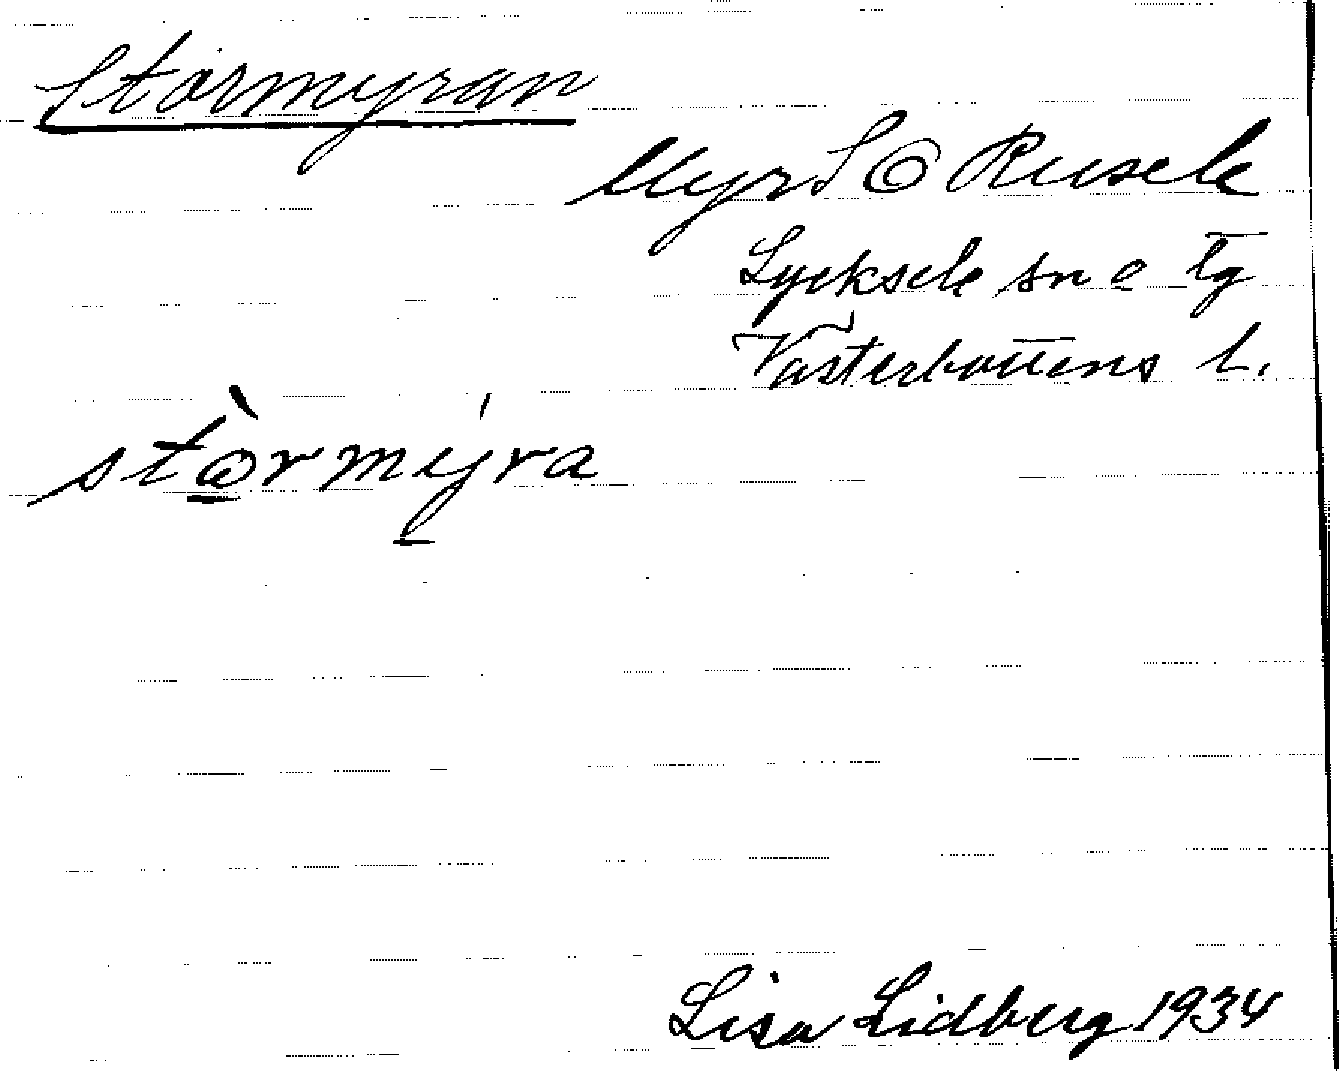 Stormyran
Myr S Ö Rusele
Lycksele sn o tg
Västerbottens l.
stòrmýra
Lisa Lidberg 1934